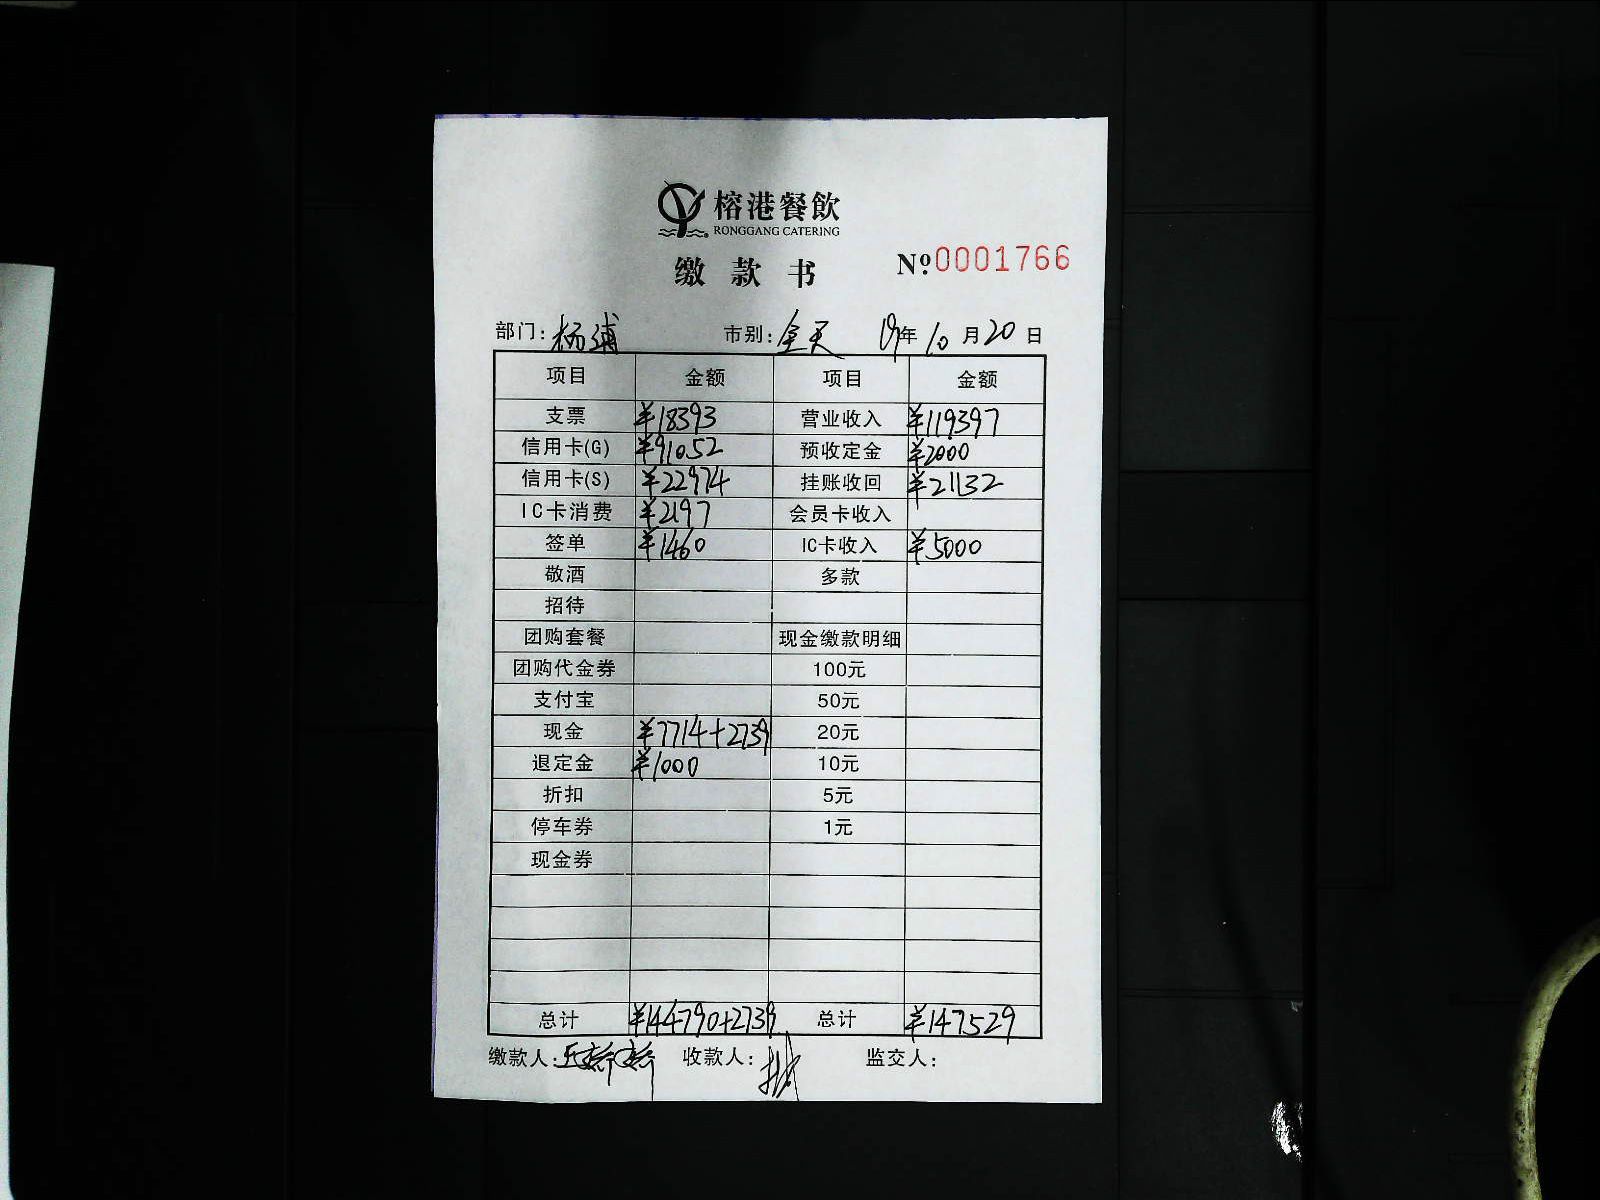 榕港餐飲
RONGGANG CATERING
缴款书 №0001766
部门: 杨浦 市别: 全天 19年10月20日
项目 金额 项目 金额
支票 ¥18393 营业收入 ¥119397
信用卡(G) ¥91052 预收定金 ¥2000
信用卡(S) ¥22974 挂账收回 ¥21132
IC卡消费 ¥2197 会员卡收入
签单 ¥1460 IC卡收入 ¥5000
敬酒 多款
招待
团购套餐 现金缴款明细
团购代金券 100元
支付宝 50元
现金 ¥7714+2739 20元
退定金 ¥1000 10元
折扣 5元
停车券 1元
现金券
总计 ¥144790+2739 总计 ¥147529
缴款人: 收款人: 监交人: